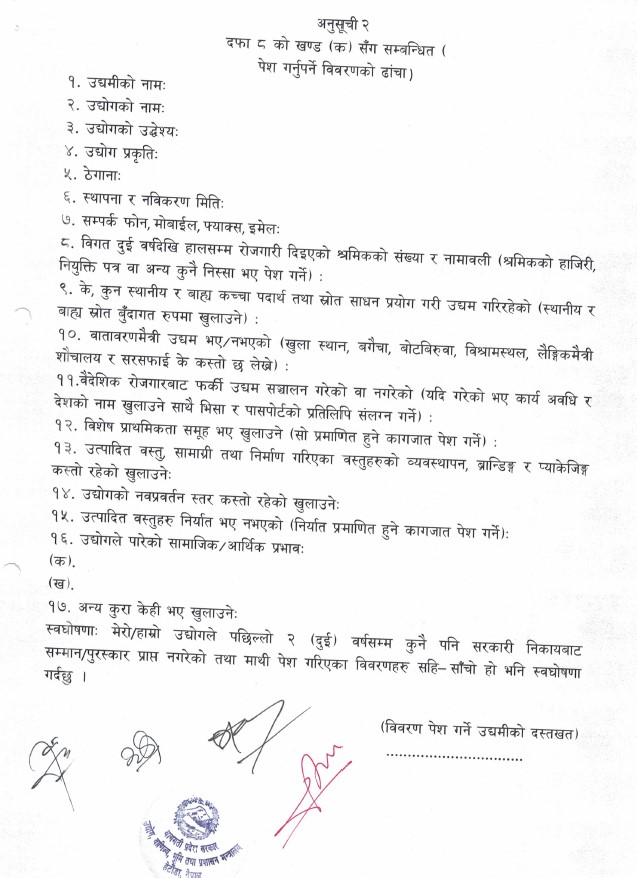 अनुसूची २
दफा ८ को खण्ड (क) सँग सम्बन्धित (
पेश गर्नुपर्ने विवरणको ढांचा)
१. उद्यमीको नामः
२. उद्योगको नामः
३. उद्योगको उद्धेश्यः
४. उद्योग प्रकृतिः
५. ठेगानाः
६. स्थापना र नविकरण मितिः
७. सम्पर्क फोन, मोबाईल, फ्याक्स, इमेलः
८. विगत दुई बर्षदेखि हालसम्म रोजगारी दिइएको श्रमिकको संख्या र नामावली (श्रमिकको हाजिरी,
नियुक्ति पत्र वा अन्य कुनै निस्सा भए पेश गर्ने) :
९. के, कुन स्थानीय र बाह्य कच्चा पदार्थ तथा स्रोत साधन प्रयोग गरी उद्यम गरिरहेको (स्थानीय र
बाह्य स्रोत बुँदागत रुपमा खुलाउने) :
१०. बातावरणमैत्री उद्यम भए/नभएको (खुला स्थान, बगैचा, बोटबिरुवा, विश्रामस्थल, लैङ्गिकमैत्री
शौचालय र सरसफाई के कस्तो छ लेख्ने) :
११.वैदेशिक रोजगारबाट फर्की उद्यम सञ्चालन गरेको वा नगरेको (यदि गरेको भए कार्य अवधि र
देशको नाम खुलाउने साथै भिसा र पासपोर्टको प्रतिलिपि संलग्न गर्ने) :
१२. विशेष प्राथमिकता समूह भए खुलाउने (सो प्रमाणित हुने कागजात पेश गर्ने) :
१३. उत्पादित वस्तु, सामाग्री तथा निर्माण गरिएका वस्तुहरुको व्यवस्थापन, ब्रान्डिङ्ग र प्याकेजिङ्ग
कस्तो रहेको खुलाउनेः
१४. उद्योगको नवप्रवर्तन स्तर कस्तो रहेको खुलाउनेः
१५. उत्पादित वस्तुहरु निर्यात भए नभएको (निर्यात प्रमाणित हुने कागजात पेश गर्ने)ः
१६. उद्योगले पारेको सामाजिक/आर्थिक प्रभावः
(क).
(ख).
१७. अन्य कुरा केही भए खुलाउनेः
स्वघोषणाः मेरो/हाम्रो उद्योगले पछिल्लो २ (दुई) वर्षसम्म कुनै पनि सरकारी निकायबाट
सम्मान/पुरस्कार प्राप्त नगरेको तथा माथी पेश गरिएका विवरणहरु सहि–साँचो हो भनि स्वघोषणा
गर्दछु ।
(विवरण पेश गर्ने उद्यमीको दस्तखत)
................................
बागमती प्रदेश सरकार
उद्योग, वाणिज्य, भूमि तथा प्रशासन मन्त्रालय
हेटौंडा, नेपाल